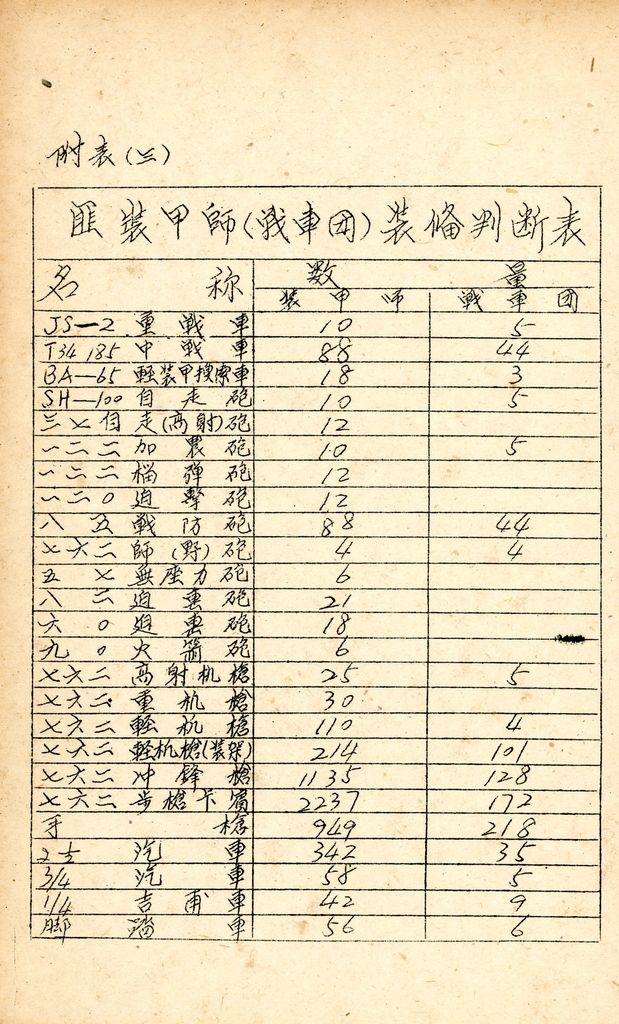 附表(三)
匪装甲師(戦車团)装俻判断表
名称 数量
装甲師 戦車团
JS—2重戦車 10 5
T34185中戦車 88 44
BA—65輕装甲搜索車 18 3
SH—100自走砲 10 5
三七自走(高射)砲 12
一二二加農砲 10 5
一二二榴弹砲 12
一二0迫擊砲 12
八五戦防砲 88 44
七六二師(野)砲 4 4
五七無座力砲 6
八二迫 砲 21
六0迫 砲 18
九0火箭砲 6
七六二高射机槍 25 5
七六二重机槍 30
七六二輕机槍 110 4
七六二輕机槍(装架) 214 101
七六二冲鋒槍 1135 128
七六二步槍卡賓 2237 172
手槍 949 218
2½汽車 342 35
3/4汽車 58 5
1/4吉甫車 42 9
脚踏車 56 6